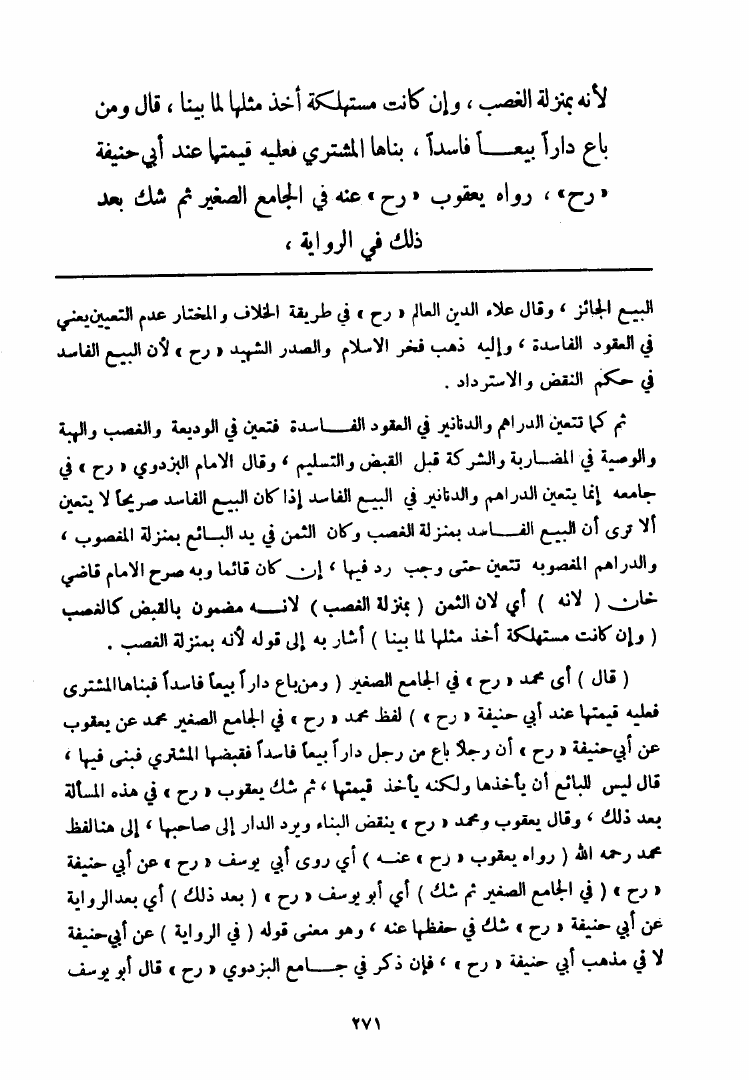 لأنه بمنزلة الغصب ، وإن كانت مستهلكة أخذ مثلها لما بينا ، قال ومن
باع داراً بيعـــاً فاسداً ، بناها المشتري فعليه قيمتها عند أبي حنيفة
« رح» ، رواه يعقوب « رح» عنه في الجامع الصغير ثم شك بعد
ذلك في الرواية ،
البيع الجائز ، وقال علاء الدين العالم « رح » في طريقة الخلاف والمختار عدم التعيين يعني
في العقود الفاسدة ، وإليه ذهب فخر الاسلام والصدر الشهيد « رح » لأن البيع الفاسد
في حكم النقض والاسترداد .
ثم كما تتعين الدراهم والدنانير في العقود الفـــاسدة فتعين في الوديعة والغصب والهبة
والوصية في المضـاربة والشركة قبل القبض والتسليم ، وقال الامام البزدوي « رح » في
جامعه إنما يتعين الدراهم والدنانير في البيع الفاسد إذا كان البيع الفاسد صريحاً لا يتعين
ألا ترى أن البيع الفـــاسد بمنزلة الغصب وكان الثمن في يد البـائع بمنزلة المغصوب ،
والدراهم المغصوبه تتعين حتى وجب رد فيها ، إن كان قائما وبه صرح الامام قاضي
خان ( لانه ) أي لان الثمن ( بمنزلة الغصب ) لانـــه مضمون بالقبض كالغصب
( وإن كانت مستهلكة أخذ مثلها لما بينا ) أشار به إلى قوله لأنه بمنزلة الغصب .
( قال ) أى محمد « رح » في الجامع الصغير ( ومن باع داراً بيعاً فاسداً فبناها المشترى
فعليه قيمتها عند أبي حنيفة « رح » ) لفظ محمد « رح » في الجامع الصغير محمد عن يعقوب
عن أبي حنيفة « رح » أن رجلاً باع من رجل داراً بيعاً فاسداً فقبضها المشتري فبنى فيها ،
قال ليس للبائع أن يأخذها ولكنه يأخذ قيمتها ، ثم شك يعقوب « رح » في هذه المسألة
بعد ذلك ، وقال يعقوب ومحمد « رح » ينقض البناء ويرد الدار إلى صاحبها ، إلى هنا لفظ
محمد رحمه الله ( رواه يعقوب « رح » عنـــه ) أي روى أبي يوسف « رح » عن أبي حنيفة
« رح » ( في الجامع الصغير ثم شك ) أي أبو يوسف « رح » ( بعد ذلك ) أي بعد الرواية
عن أبي حنيفة « رح » شك في حفظها عنه ، وهو معنى قوله ( في الرواية ) عن أبي حنيفة
لا في مذهب أبي حنيفة « رح » ، فإن ذكر في جـــامع البزدوي « رح » قال أبو يوسف
٢٧١